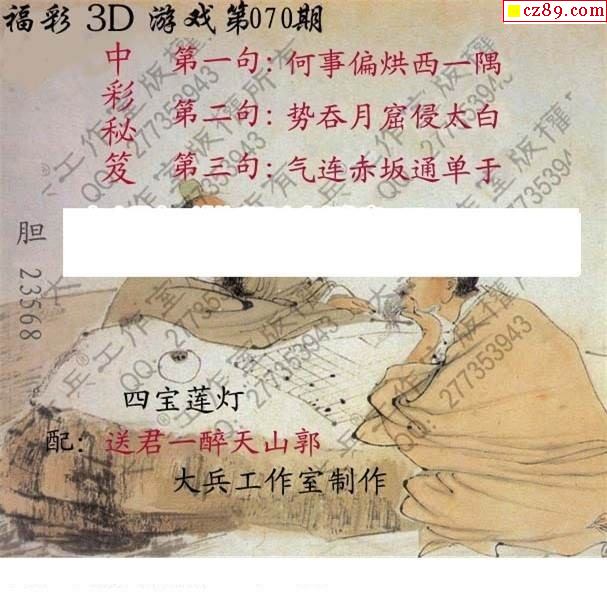 福彩 3D 游戏第070期
cz89.com
中彩秘笈
第一句：何事偏烘西一隅
第二句：势吞月窟侵太白
第三句：气连赤坂通单于
胆 23568
四宝莲灯
配：送君一醉天山郭
大兵工作室制作
大兵®工作室版权所有 QQ：277353943